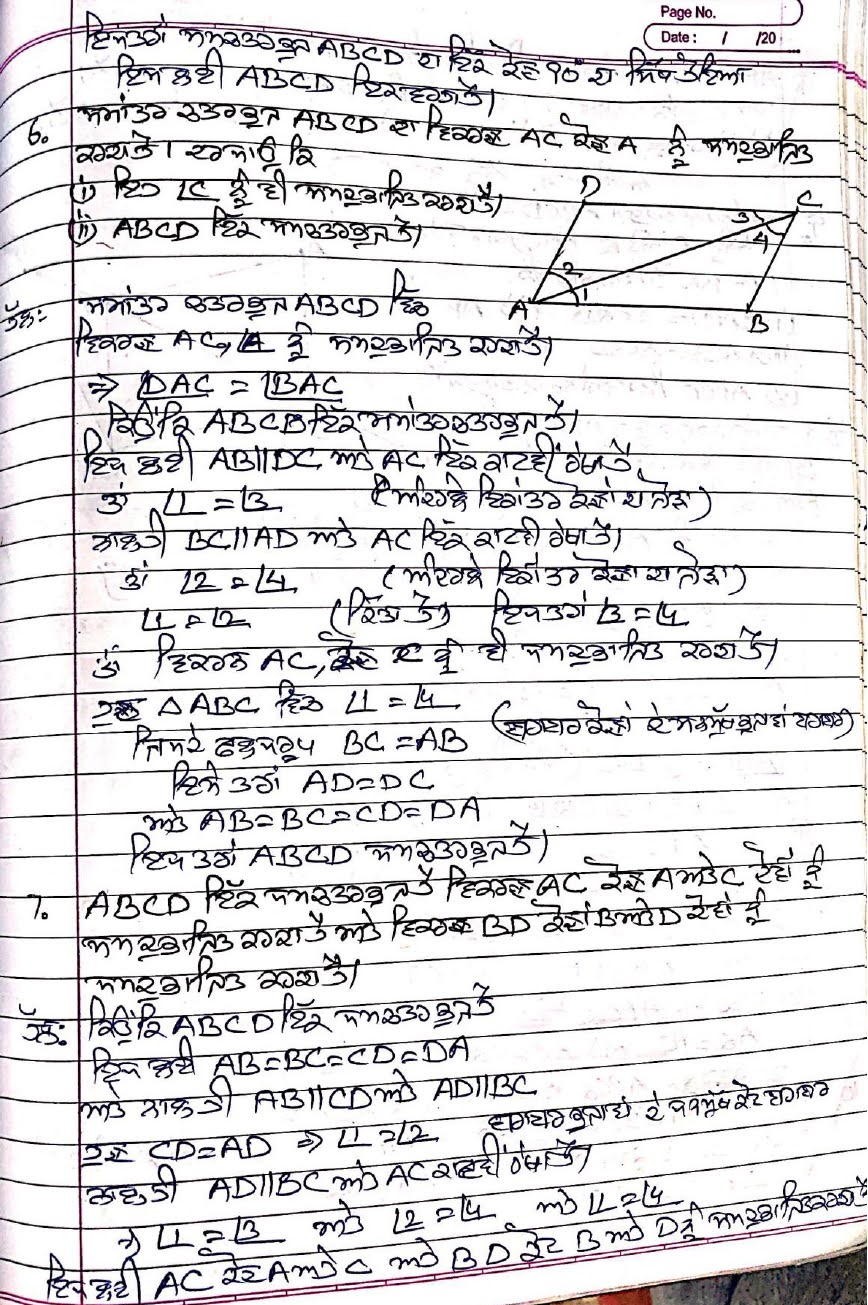 Page No.
Date : / /20
ਇਸਤਰਾਂ ਸਮਚਤਰਭੁਜ ABCD ਦਾ ਇੱਕ ਕੋਣ 90° ਦਾ ਸਿੱਧ ਹੋਇਆ
ਇਸ ਲਈ ABCD ਇੱਕ ਵਰਗ ਹੈ।
6. ਸਮਾਂਤਰ ਚਤਰਭੁਜ ABCD ਦਾ ਵਿਕਰਣ AC ਕੋਣ A ਨੂੰ ਸਮਦੁਭਾਜਿਤ
ਕਰਦਾ ਹੈ। ਦਰਸਾਉ ਕਿ
(i) ਇਹ ∠C ਨੂੰ ਵੀ ਸਮਦੁਭਾਜਿਤ ਕਰਦਾ ਹੈ।
(ii) ABCD ਇੱਕ ਸਮਚਤਰਭੁਜ ਹੈ।
D C
3 4
2 1
A B
ਹੱਲ: ਸਮਾਂਤਰ ਚਤਰਭੁਜ ABCD ਵਿੱਚ
ਵਿਕਰਣ AC, ∠A ਨੂੰ ਸਮਦੁਭਾਜਿਤ ਕਰਦਾ ਹੈ।
⇒ ∠DAC = ∠BAC
ਕਿਉਂਕਿ ABCD ਇੱਕ ਸਮਾਂਤਰ ਚਤਰਭੁਜ ਹੈ।
ਇਸ ਲਈ AB||DC ਅਤੇ AC ਇੱਕ ਕਾਟਵੀਂ ਰੇਖਾ ਹੈ
ਤਾਂ ∠1 = ∠3 (ਅੰਦਰਲੇ ਇਕਾਂਤਰ ਕੋਣਾਂ ਦਾ ਜੋੜਾ)
ਨਾਲ ਹੀ BC||AD ਅਤੇ AC ਇੱਕ ਕਾਟਵੀ ਰੇਖਾ ਹੈ।
ਤਾਂ ∠2 = ∠4 (ਅੰਦਰਲੇ ਇਕਾਂਤਰ ਕੋਣਾ ਦਾ ਜੋੜਾ)
∠1 = ∠2 (ਦਿੱਤਾ ਹੈ) ਇਸਤਰਾਂ ∠3 = ∠4
ਤਾਂ ਵਿਕਰਨ AC, ਕੋਣ C ਨੂੰ ਵੀ ਸਮਦੁਭਾਜਿਤ ਕਰਦਾ ਹੈ।
ਹੁਣ △ABC ਵਿੱਚ ∠1 = ∠4
ਜਿਸਦੇ ਫਲਸਰੂਪ BC = AB (ਬਰਾਬਰ ਕੋਣਾਂ ਦੇ ਸਨਮੁੱਖ ਭੁਜਾਵਾਂ ਬਰਾਬਰ)
ਇਸੇ ਤਰਾਂ AD=DC
ਅਤੇ AB=BC=CD=DA
ਇਸ ਤਰਾਂ ABCD ਸਮਚਤਰਭੁਜ ਹੈ।
7. ABCD ਇੱਕ ਸਮਚਤਰਭੁਜ ਹੈ ਵਿਕਰਣ AC ਕੋਣ A ਅਤੇ C ਦੋਵਾਂ ਨੂੰ
ਸਮਦੁਭਾਜਿਤ ਕਰਦਾ ਹੈ ਅਤੇ ਵਿਕਰਣ BD ਕੋਣਾਂ B ਅਤੇ D ਦੋਵਾਂ ਨੂੰ
ਸਮਦੁਭਾਜਿਤ ਕਰਦਾ ਹੈ।
ਹੱਲ: ਕਿਉਂਕਿ ABCD ਇੱਕ ਸਮਚਤਰਭੁਜ ਹੈ
ਇਸ ਲਈ AB=BC=CD=DA
ਅਤੇ ਨਾਲ ਹੀ AB||CD ਅਤੇ AD||BC
ਹੁਣ CD=AD ⇒ ∠1 = ∠2 ਬਰਾਬਰ ਭੁਜਾਵਾਂ ਦੇ ਸਨਮੁੱਖ ਕੋਣ ਬਰਾਬਰ
ਨਾਲ ਹੀ AD||BC ਅਤੇ AC ਕਾਟਵੀਂ ਰੇਖਾ ਹੈ।
⇒ ∠1 = ∠3 ਅਤੇ ∠2 = ∠4 ਅਤੇ ∠1 = ∠4
ਇਸ ਲਈ AC ਕੋਣ A ਅਤੇ C ਅਤੇ BD ਕੋਣ B ਅਤੇ D ਨੂੰ ਸਮਦੁਭਾਜਿਤ ਕਰਦਾ ਹੈ